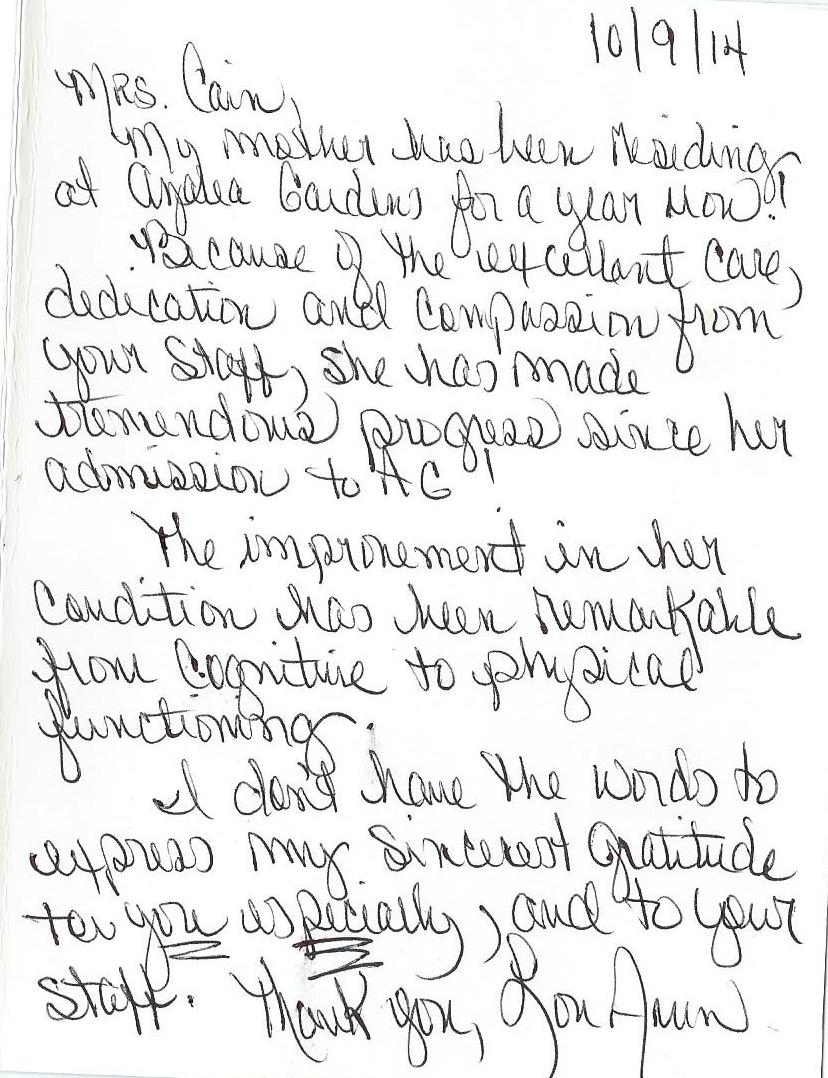 10/9/14
Mrs. Cain,
My mother has been residing
at Azalea Gardens for a year now!
Because of the excellant care,
dedication and compassion from
your staff, she has made
tremendous progress since her
admission to AG!
The improvement in her
condition has been remarkable
from cognitive to physical
functioning.
I don't have the words to
express my sincerest gratitude
to you especially, and to your
staff. Thank you, Lou Ann